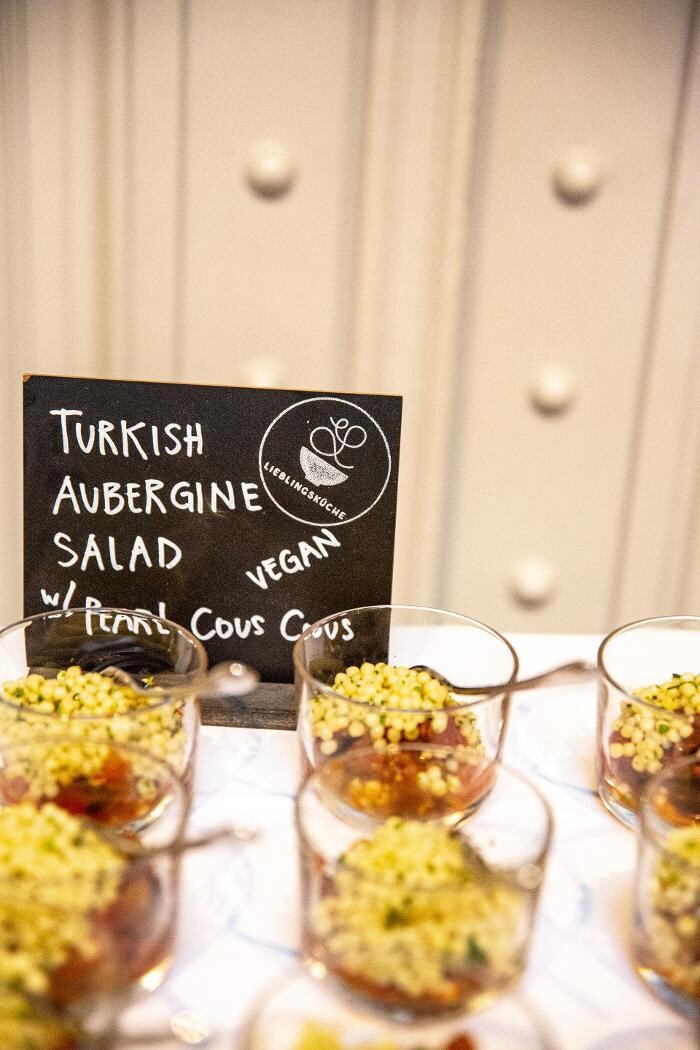 TURKISH
AUBERGINE
SALAD
W/ PEARL COUS COUS
VEGAN
LIEBLINGSKÜCHE